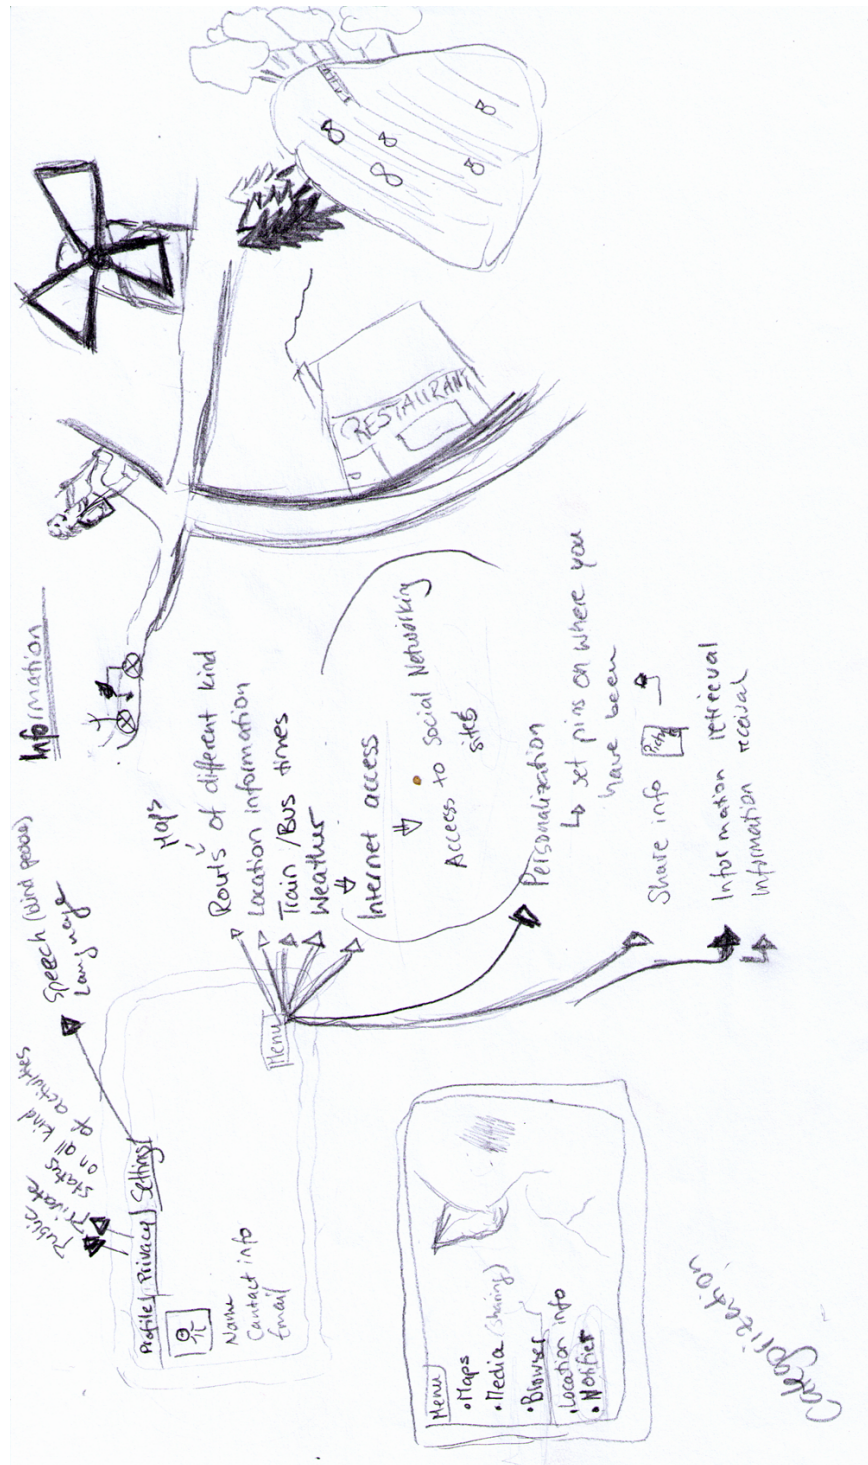 Information
RESTAURANT
Speech (blind people)
Language
Public
Private
status
on all kind
of activities
Profile Privacy Setting
Name
Contact info
Email
Menu
Maps
Routs of different kind
Location information
Train / Bus times
Weather
Internet access
Access to Social Networking
site
Personalization
set pins on where you
have been
Share info
Information retrieval
Information receival
Menu
• Maps
• Media (sharing)
• Browser
• Location info
• Notifier
Categorization